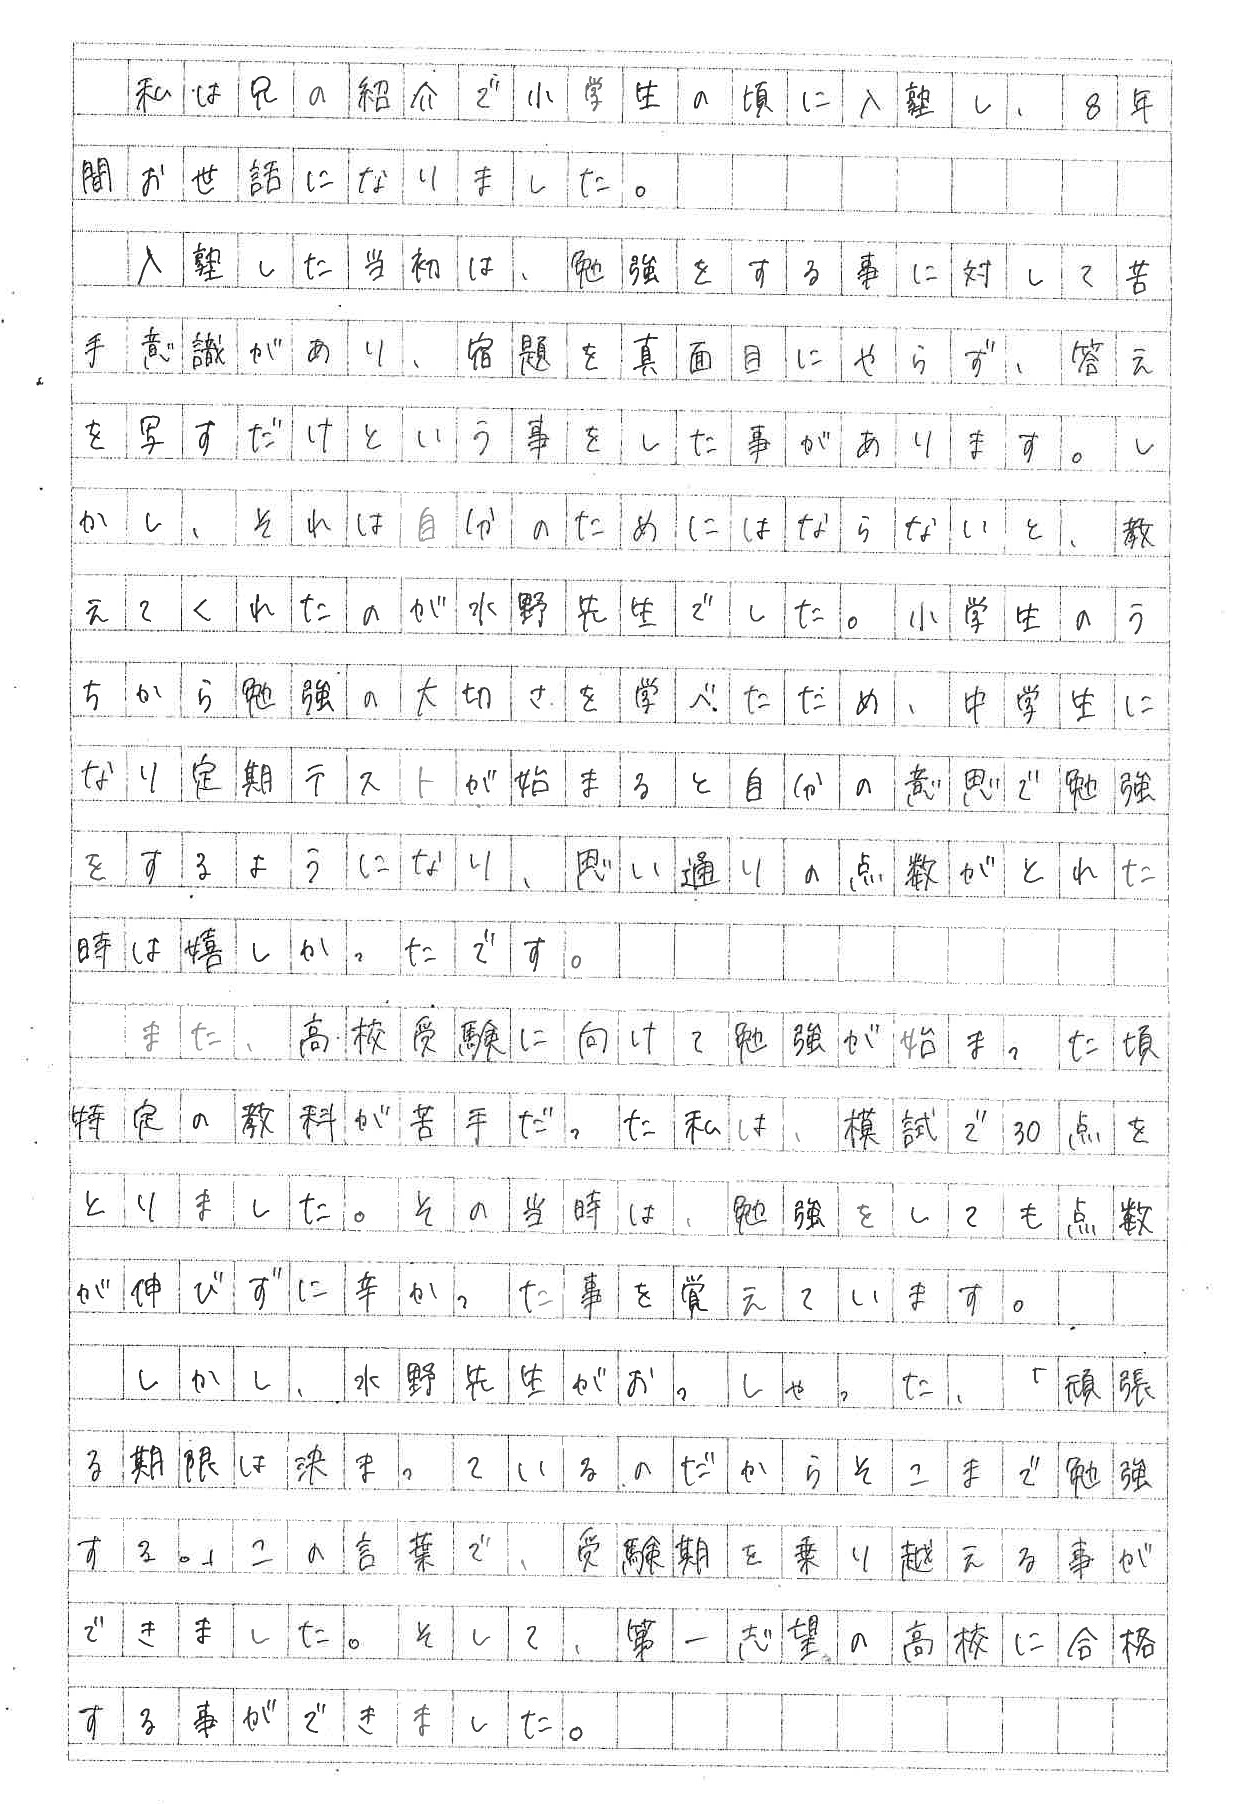 私は兄の紹介で小学生の頃に入塾し、8年
間お世話になりました。
　入塾した当初は、勉強をする事に対して苦
手意識があり、宿題を真面目にやらず、答え
を写すだけという事をした事があります。し
かし、それは自分のためにはならないと、教
えてくれたのが水野先生でした。小学生のう
ちから勉強の大切さを学べただめ、中学生に
なり定期テストが始まると自分の意思で勉強
をするようになり、思い通りの点数がとれた
時は嬉しかったです。
　また、高校受験に向けて勉強が始まった頃
特定の教科が苦手だった私は、模試で30点を
とりました。その当時は、勉強をしても点数
が伸びずに辛かった事を覚えています。
　しかし、水野先生がおっしゃった、「頑張
る期限は決まっているのだからそこまで勉強
する。」この言葉で、受験期を乗り越える事が
できました。そして、第一志望の高校に合格
する事ができました。